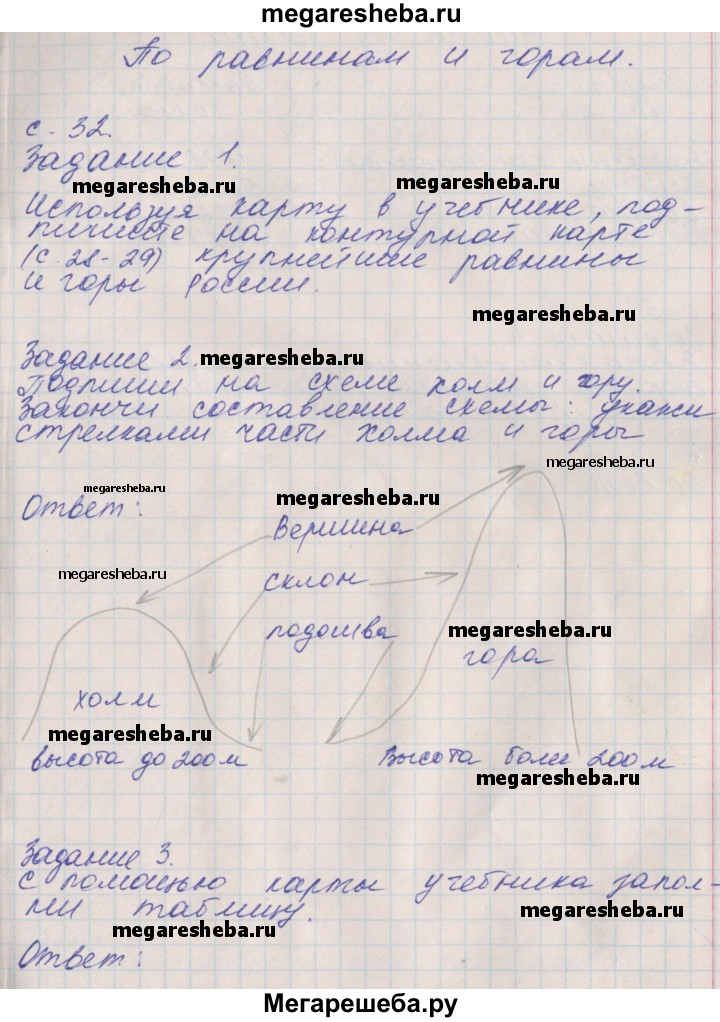 megaresheba.ru
По равнинам и горам.
с. 32.
Задание 1.
megaresheba.ru
megaresheba.ru
Используя карту в учебнике, под-
пишите на контурной карте
(с. 28-29) крупнейшие равнины
и горы России.
megaresheba.ru
Задание 2.
megaresheba.ru
Подпиши на схеме холм и гору.
Закончи составление схемы: укажи
стрелками части холма и горы
megaresheba.ru
megaresheba.ru
megaresheba.ru
Ответ:
Вершина
megaresheba.ru
склон
подошва
megaresheba.ru
гора
холм
megaresheba.ru
высота до 200 м
Высота боли 200 м
megaresheba.ru
Задание 3.
с помощью карты учебника запол-
ни таблицу.
megaresheba.ru
megaresheba.ru
Ответ:
Мегарешеба.ру